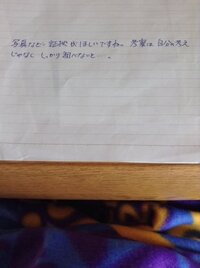 写真など 証拠がほしいですね。 考察は 自分の考え
じゃなく しっかり 調べないと…。